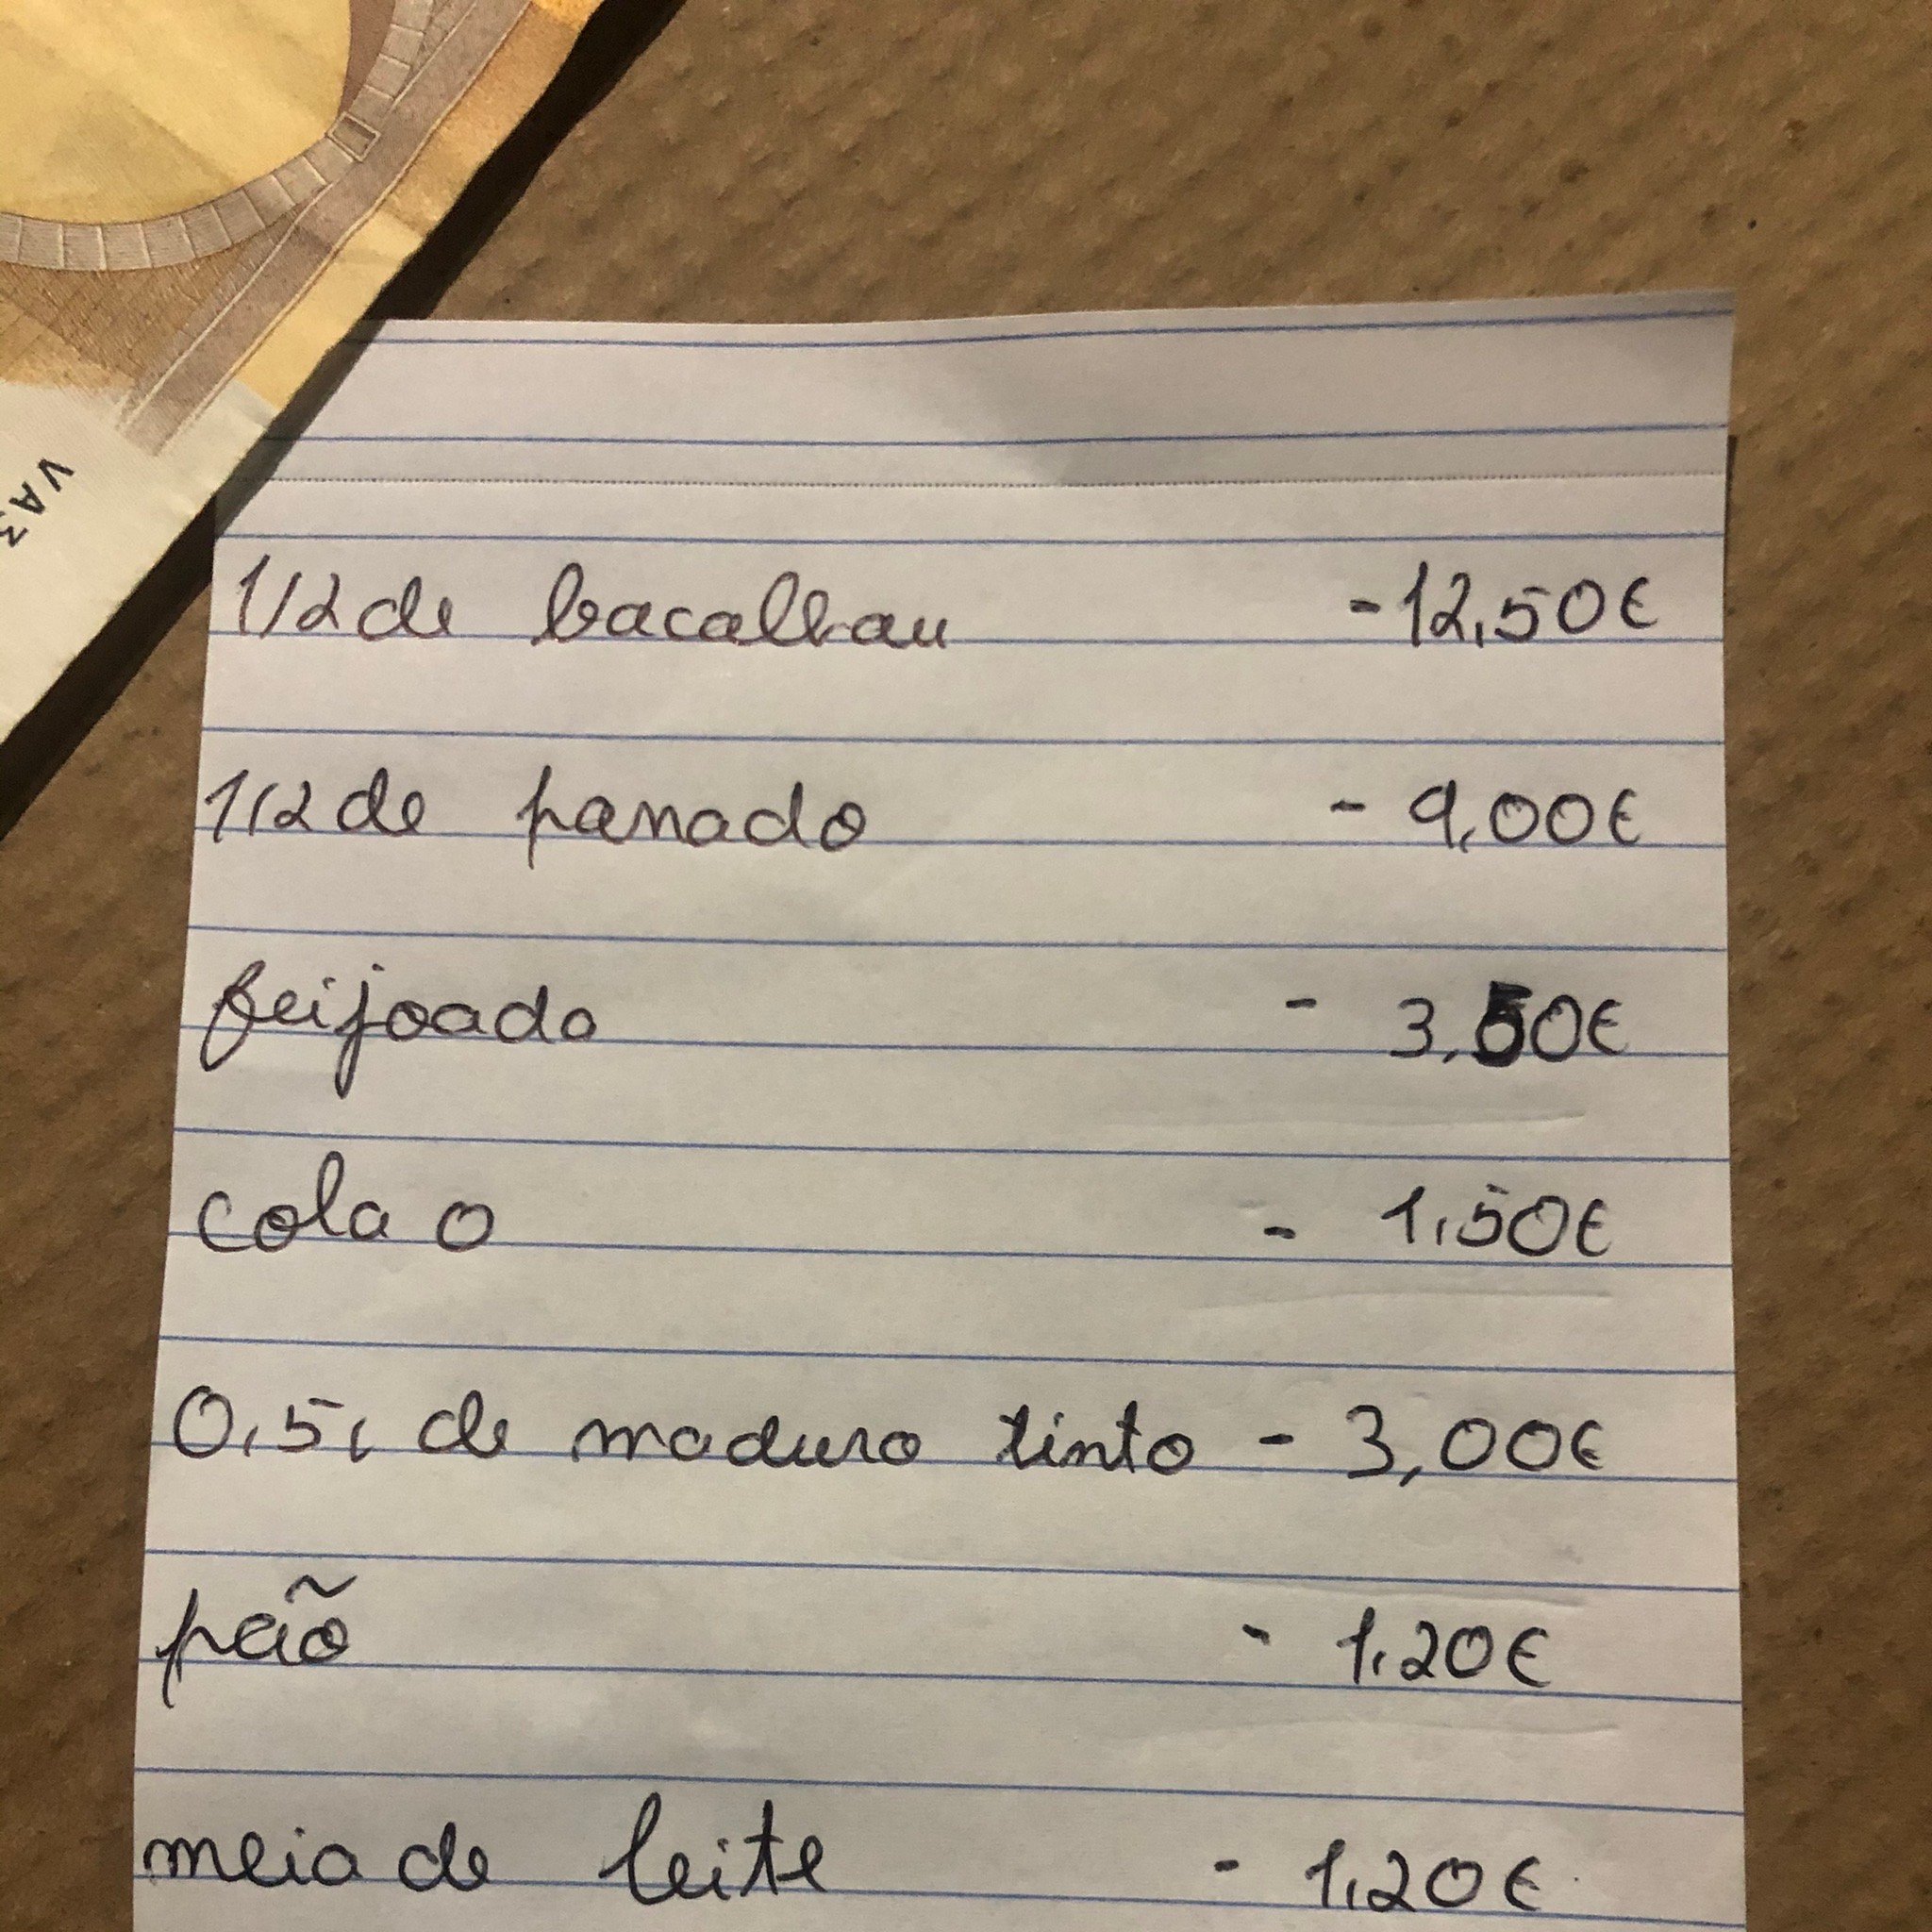 VA3
1/2 de bacalhau -12,50€
1/2 de panado - 9,00€
feijoada - 3,50€
cola 0 - 1,50€
0,5l de maduro tinto - 3,00€
pão - 1,20€
meia de leite - 1,20€